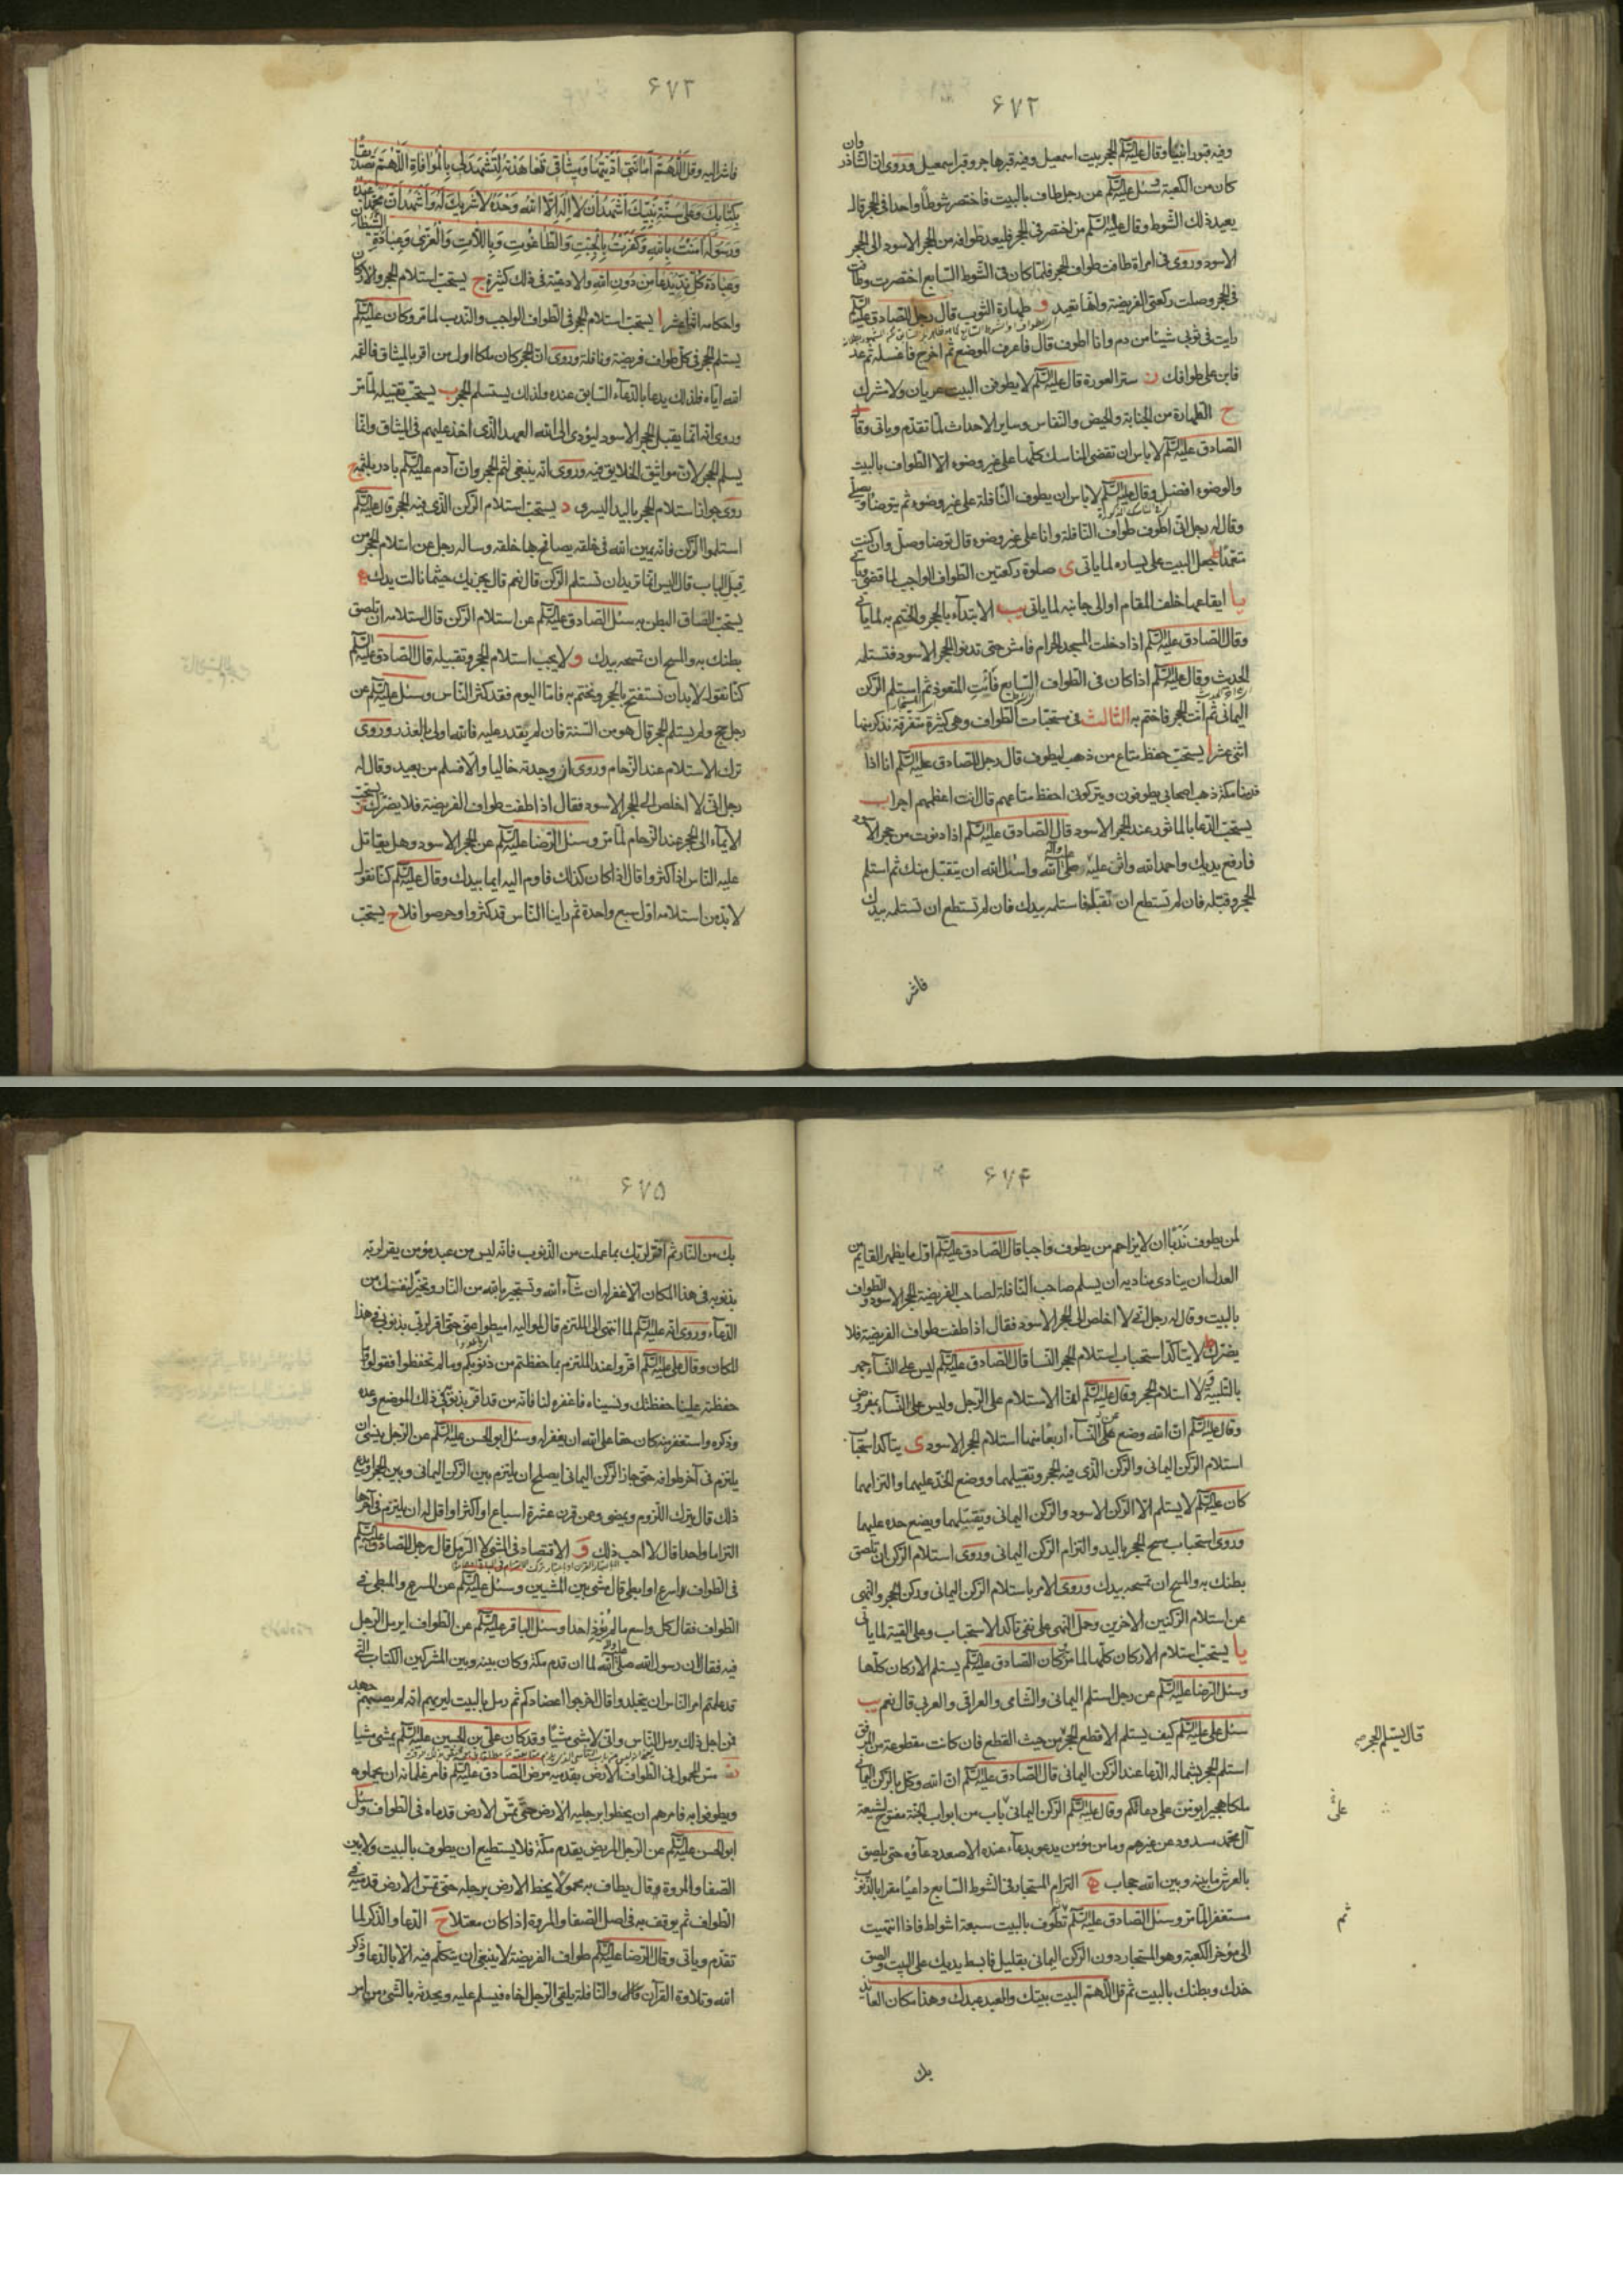 ۶۷۲
وفيه قبور انبياء وقال عليه السلم الحجر بيت اسمعيل وفيه قبر هاجر وقبر اسمعيل وروى ان الشاذروان
كان من الكعبة وسئل عليه السلم عن رجل طاف بالبيت فاختصر شوطا واحدا في الحجر قال
يعيد ذلك الشوط وقال عليه السلم من اختصر في الحجر فليعد طوافه من الحجر الاسود الى الحجر
الاسود وروى في امراة طافت طواف الحجر فلما كان في الشوط السابع اختصرت وطافت
في الحجر وصلت ركعتي الفريضة وانها تعيد و طهارة الثوب قال رجل للصادق عليه السلم
رايت في ثوبي شيئا من دم وانا اطوف قال فاعرف الموضع ثم اخرج فاغسله ثم عد
فابن على طوافك ز ستر العورة قال عليه السلم لا يطوفن البيت عريان ولا مشرك
ح الطهارة من الجنابة والحيض والنفاس وساير الاحداث لما تقدم وياتي وقال
الصادق عليه السلم لا باس ان تقضى المناسك كلها على غير وضوء الا الطواف بالبيت
والوضوء افضل وقال عليه السلم لا باس ان يطوف النافلة على غير وضوء ثم يتوضأ ويصلي
وقال له رجل اني اطوف طواف النافلة وانا على غير وضوء قال توضا وصل وان كنت
متعمدا ط جعل البيت على يساره لما ياتي ى صلوة ركعتين الطواف الواجب لما مضى وياتي
يا ايقاعهما خلف المقام او الى جانبه لما ياتي يب الابتداء بالحجر والختم به لما ياتي
وقال الصادق عليه السلم اذا دخلت المسجد الحرام فامش حتى تدنو الحجر الاسود فتستلمه
الحديث وقال عليه السلم اذا كان في الطواف السابع فائت المتعوذ ثم استلم الركن
اليماني ثم ائت الحجر فاختم به الثالث في مستحبات الطواف وهي كثيرة متفرقة نذكر منها
اثنى عشر ا يستحب حفظ متاع من ذهب ليطوف قال رجل للصادق عليه السلم انا اذا
قدمنا مكة ذهب اصحابي يطوفون ويتركوني احفظ متاعهم قال انت اعظمهم اجرا ب
يستحب الدعا بالماثور عند الحجر الاسود قال الصادق عليه السلم اذا دنوت من حجر الاسود
فارفع يديك واحمد الله واثن عليه صلى الله عليه وآله واسئل الله ان يتقبل منك ثم استلم
الحجر وقبله فان لم تستطع ان تقبله فاستلمه بيدك فان لم تستطع ان تستلمه بيدك
فاشر
۶۷۳
فاشر اليه وقل اللهم امانتي اديتها وميثاقي تعاهدته لتشهد لي بالموافاة اللهم تصديقا
بكتابك وعلى سنة نبيك اشهد ان لا اله الا الله وحده لا شريك له واشهد ان محمدا عبده
ورسوله امنت بالله وكفرت بالجبت والطاغوت وباللات والعزى وعبادة الشيطان
وعبادة كل ند يدعا من دون الله والادعية في ذلك كثيرة ج يستحب استلام الحجر والاركان
واحكامه اثنا عشر ا يستحب استلام الحجر في الطواف الواجب والندب لما مر وكان عليه السلم
يستلم الحجر في كل طواف فريضة ونافلة وروى ان الحجر كان ملكا اول من اقر بالميثاق فالقمه
الله اياه فلذلك يدعا بالدعاء السابق عنده ولذلك يستلم الحجر ب يستحب تقبيله لما مر
وروى انه انما يقبل الحجر الاسود ليؤدى الى الله العهد الذي اخذ عليهم في الميثاق وانما
يسلم الحجر لان مواثيق الخلايق فيه وروى انه ينبغي لثم الحجر وان آدم عليه السلم بادر بلثمه ج
روى جواز استلام الحجر باليد اليسرى د يستحب استلام الركن الذي فيه الحجر قال عليه السلم
استلموا الركن فانه يمين الله في خلقه يصافح بها خلقه وساله رجل عن استلام الحجر من
قبل الباب قال اليس انما تريد ان تستلم الركن قال نعم قال يجزيك حيثما نالت يدك ه
يستحب الصاق البطن به سئل الصادق عليه السلم عن استلام الركن قال استلامه ان تلصق
بطنك به والمسح ان تمسحه بيدك و لا يجب استلام الحجر وتقبيله قال الصادق عليه السلم
كنا نقول لا بد ان نستفتح بالحجر ونختم به فاما اليوم فقد كثر الناس وسئل عليه السلم عن
رجل حج ولم يستلم الحجر قال هو من السنة فان لم يقدر عليه فالله اولى بالعذر وروى
ترك الاستلام عند الزحام وروى ان وجدته خاليا والا فسلم من بعيد وقال له
رجل اني لا اخلص الى الحجر الاسود فقال اذا طفت طواف الفريضة فلا يضرك ز يستحب
الايماء الى الحجر عند الزحام لما مر وسئل الرضا عليه السلم عن الحجر الاسود وهل يقاتل
عليه الناس اذا كثروا قال اذا كان كذلك فاوم اليه ايما بيدك وقال عليه السلم كنا نقول
لا بد من استلامه اول سبع واحدة ثم راينا الناس قد كثروا وحرصوا فلا ح يستحب
۶۷۴
لمن يطوف ندبا ان لا يزاحم من يطوف واجبا قال الصادق عليه السلم اول ما يظهر القايم من
العدل ان ينادى مناديه ان يسلم صاحب النافلة لصاحب الفريضة الحجر الاسود والطواف
بالبيت وقال له رجل اني لا اخلص الى الحجر الاسود فقال اذا طفت طواف الفريضة فلا
يضرك ط لا يتاكد استحباب استلام الحجر النسا قال الصادق عليه السلم ليس على النساء جهر
بالتلبية ولا استلام الحجر وقال عليه السلم انما الاستلام على الرجل وليس على النساء بمفروض
وقال عليه السلم ان الله وضع عن النساء اربعا منها استلام الحجر الاسود ى يتاكد استحباب
استلام الركن اليماني والركن الذي فيه الحجر وتقبيلهما ووضع الخد عليهما والتزامهما
كان عليه السلم لا يستلم الا الركن الاسود والركن اليماني ويقبلهما ويضع خده عليهما
وروى استحباب مسح الحجر باليد والتزام الركن اليماني وروى استلام الركن ان تلصق
بطنك به والمسح ان تمسحه بيدك وروى الامر باستلام الركن اليماني وركن الحجر والنهى
عن استلام الركنين الاخرين وحمل النهى على نفى تاكد الاستحباب وعلى التقية لما ياتي
يا يستحب استلام الاركان كلها لما مر كان الصادق عليه السلم يستلم الاركان كلها
وسئل الرضا عليه السلم عن رجل استلم اليماني والشامي والعراقي والغربي قال نعم يب
سئل على عليه السلم كيف يستلم الاقطع الحجر من حيث القطع فان كانت مقطوعة من المرفق
استلم الحجر بشماله الدعا عند الركن اليماني قال الصادق عليه السلم ان الله وكل بالركن اليماني
ملكا هجيرا يؤمن على دعائكم وقال عليه السلم الركن اليماني باب من ابواب الجنة مفتوح لشيعة
آل محمد مسدود عن غيرهم وما من مؤمن يدعو بدعاء عنده الا صعد دعاؤه حتى يلصق
بالعرش ما بينه وبين الله حجاب ه التزام المستجار في الشوط السابع داعيا مقرا بالذنوب
مستغفرا لما مر وسئل الصادق عليه السلم تطوف بالبيت سبعة اشواط فاذا انتهيت
الى مؤخر الكعبة وهو المستجار دون الركن اليماني بقليل فابسط يديك على البيت والصق
خدك وبطنك بالبيت ثم قل اللهم البيت بيتك والعبد عبدك وهذا مكان العائذ
بك
قال يستلم الحجر
على
ثم
۶۷۵
بك من النار ثم اقر لربك بما عملت من الذنوب فانه ليس من عبد مؤمن يقر لربه
بذنوبه في هذا المكان الا غفر له ان شاء الله وتستجير بالله من النار وتخير لنفسك من
الدعاء وروى انه عليه السلم لما انتهى الى الملتزم قال لمواليه اميطوا عني حتى اقر لربي بذنوبي في هذا
المكان وقال على عليه السلم اقروا عند الملتزم بما حفظتم من ذنوبكم وما لم تحفظوا فقولوا وما
حفظته علينا حفظتك ونسيناه فاغفره لنا فانه من قد اقر بذنوبه في ذلك الموضع وعده
وذكره واستغفر منه كان حقا على الله ان يغفر له وسئل ابو الحسن عليه السلم عن الرجل ينسى ان
يلتزم في آخر طوافه حتى جاز الركن اليماني ايصلح ان يلتزم بين الركن اليماني وبين الحجر او يدع
ذلك قال يترك اللزوم ويمضى وعمن قرن عشرة اسباع او اكثر او اقل له ان يلتزم في آخرها
التزاما واحدا قال لا احب ذلك و الاقتصاد في المشى لا الرمل قال رجل للصادق عليه السلم
في الطواف اسرع او ابطى قال مشى بين المشيين وسئل عليه السلم عن المسرع والمبطى في
الطواف فقال كل واسع ما لم يؤذ احدا وسئل الباقر عليه السلم عن الطواف ايرمل الرجل
فيه فقال ان رسول الله صلى الله عليه وآله لما ان قدم مكة وكان بينه وبين المشركين الكتاب الذي
قد علمتم امر الناس ان يتجلدوا وقال اخرجوا اعضادكم ثم رمل بالبيت ليريهم انه لم يصبهم جهد
فمن اجل ذلك يرمل الناس واني لامشى مشيا وقد كان على بن الحسين عليه السلم يمشى مشيا
مس المحمول في الطواف الارض بقدميه مرض الصادق عليه السلم فامر غلمانه ان يحملوه
ويطوفوا به فامرهم ان يخطوا برجليه الارض حتى تمس الارض قدماه في الطواف وسئل
ابو الحسن عليه السلم عن الرجل المريض يقدم مكة فلا يستطيع ان يطوف بالبيت ولا بين
الصفا والمروة وقال يطاف به محمولا يخط الارض برجله حتى تمس الارض قدميه في
الطواف ثم يوقف به في اصل الصفا والمروة اذا كان معتلا ح الدعا والذكر لما
تقدم وياتي وقال الرضا عليه السلم طواف الفريضة لا ينبغي ان يتكلم فيه الا بالدعا وذكر
الله وتلاوة القرآن قال والنافلة يلقى الرجل اخاه فيسلم عليه ويحدثه بالشئ من امر